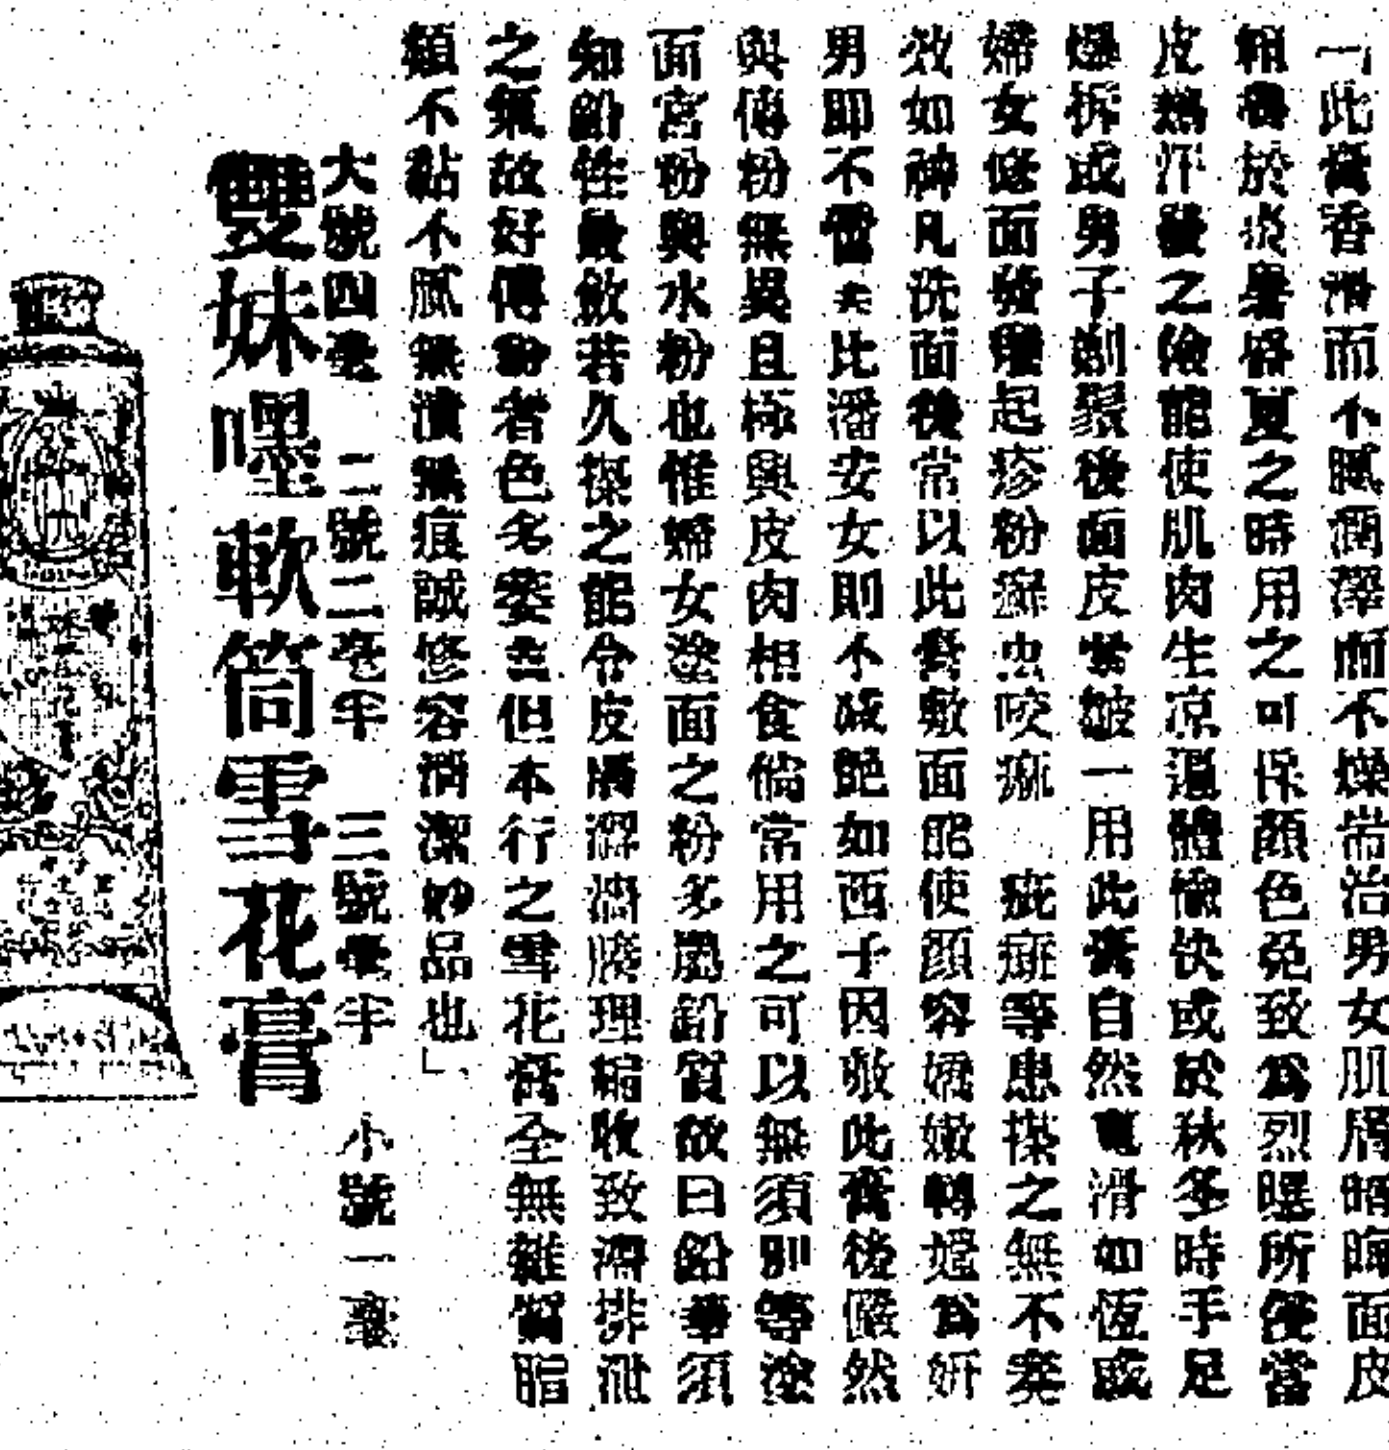 「此膏香滑而不膩潤澤而不燥常治男女肌膚暗晦面皮
粗糙於炎暑盛夏之時用之可保顏色免致為烈曬所侵當
皮熱汗發之後能使肌肉生涼遍體愉快或於秋冬時手足
爆拆或男子剃鬚後面皮緊皺一用此膏自然電滑如恆或
婦女修面發癢起疹粉癬虫咬痲疵痣斑等患搽之無不奏
效如神凡洗面後常以此膏敷面能使顏容嬌嫩轉媸為妍
男即不啻去比潘安女則不減艷如西子因敷此膏後儼然
與傅粉無異且極與皮肉相食倘常用之可以無須別等塗
面宮粉與水粉也惟婦女塗面之粉多屬鉛質故曰鉛華須
知鉛性最斂若久搽之能令皮膚澀滯腠理縮收致滯排泄
之氣故好傅粉者色多萎但本行之雪花膏全無雜質暗
類不黏不膩無漬無痕誠修容消潔妙品也」
大號四毫 二號二毫半 三號毫半 小號一毫
雙妹嘿軟筒雪花膏